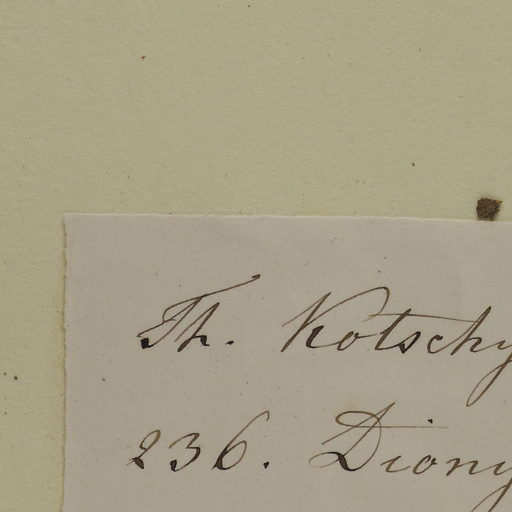 Th. Kotschy
236. Diony